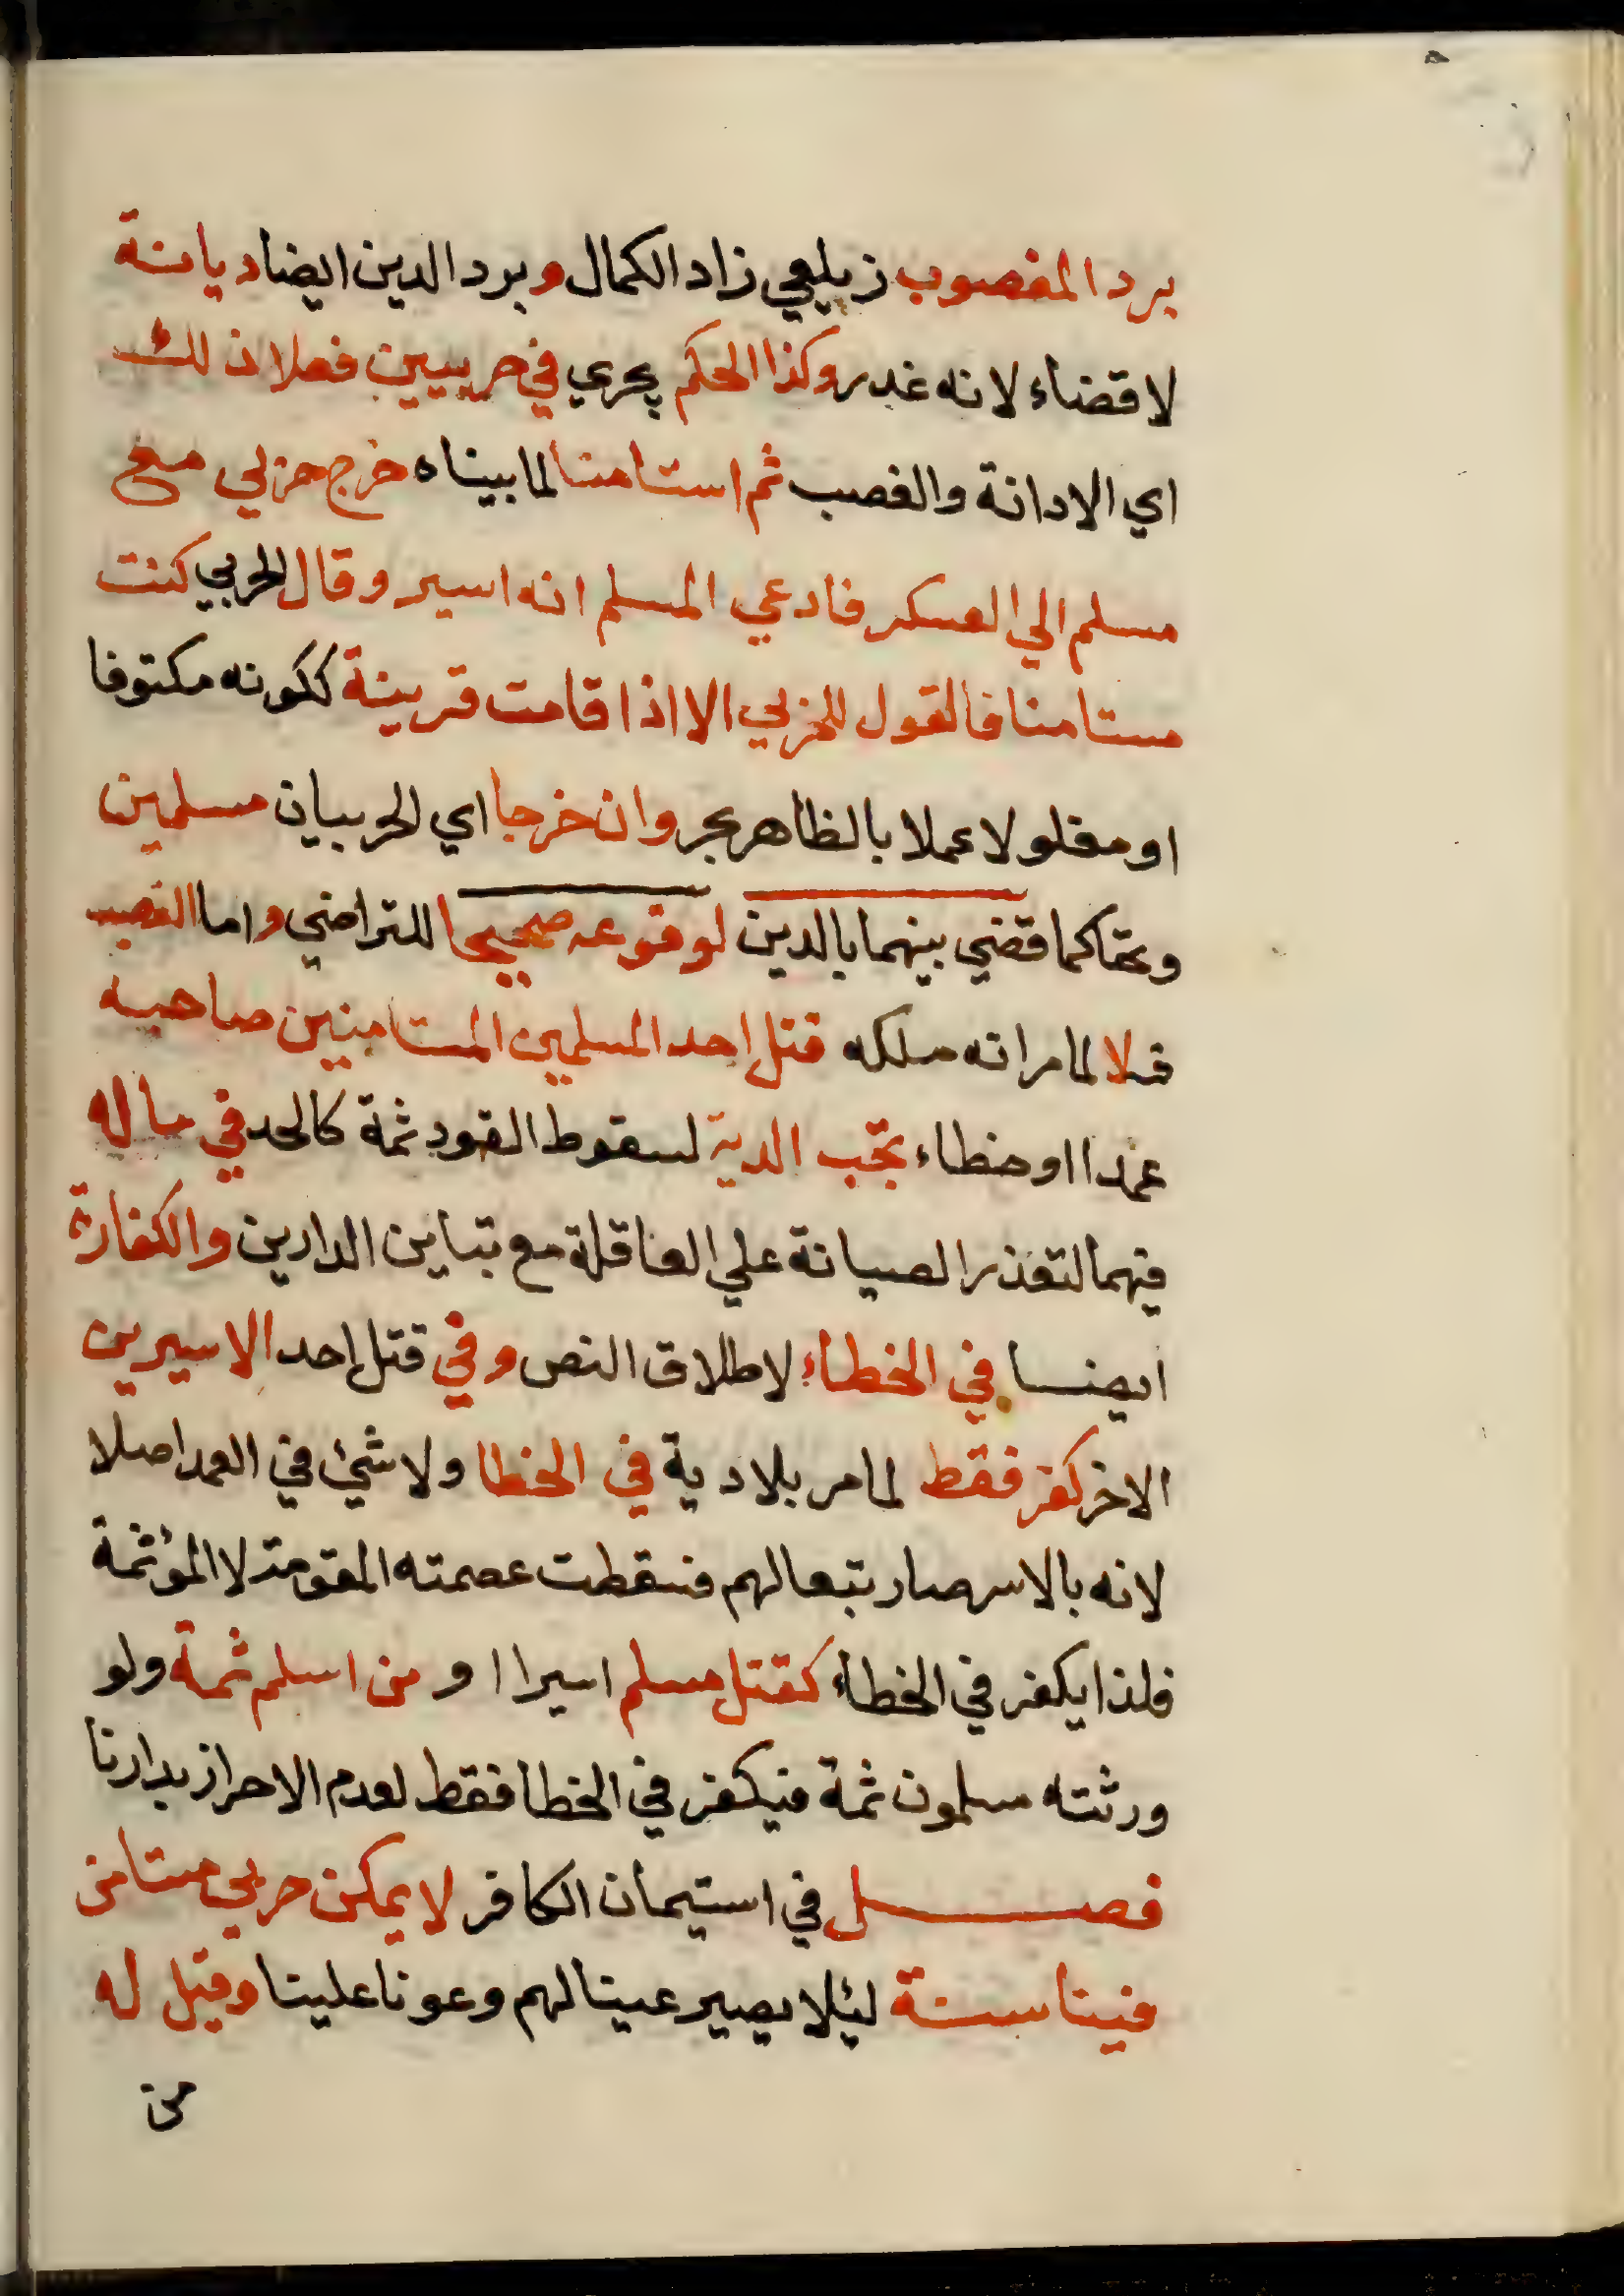 برد المغصوب زيلعي زاد الكمال وبرد الدين ايضا ديانة
لا قضاء لانه غدر وكذا الحكم يجري في حربيين فعلا ذلك
اي الادانة والغصب ثم استامنا لما بيناه خرج حربي مع
مسلم الي العسكر فادعي المسلم انه اسير وقال الحربي كنت
مستامنا فالقول للحربي الا اذا قامت قرينة ككونه مكتوفا
او مغلولا عملا بالظاهر بحر وان خرجا اي الحربيان مسلمين
وتحاكما قضي بينهما بالدين لوقوعه صحيحا للتراضي واما الغصب
فلا لما مر انه ملكه قتل احد المسلمين المستامنين صاحبه
عمدا او خطاء تجب الدية لسقوط القود ثمة كالحد في ماله
فيهما لتعذر الصيانة علي العاقلة مع تباين الدارين والكفارة
ايضا في الخطاء لاطلاق النص وفي قتل احد الاسيرين
الاخر كفر فقط لما مر بلا دية في الخطا ولا شئ في العمد اصلا
لانه بالاسر صار تبعا لهم فسقطت عصمته المقومة لا المؤثمة
فلذا يكفر في الخطاء كقتل مسلم اسيرا او من اسلم ثمة ولو
ورثته مسلمون ثمة فيكفر في الخطا فقط لعدم الاحراز بدارنا
فصل في استيمان الكافر لا يمكن حربي مستامن
فينا سنة ليئلا يصير عينا لهم وعونا علينا وقيل له
من